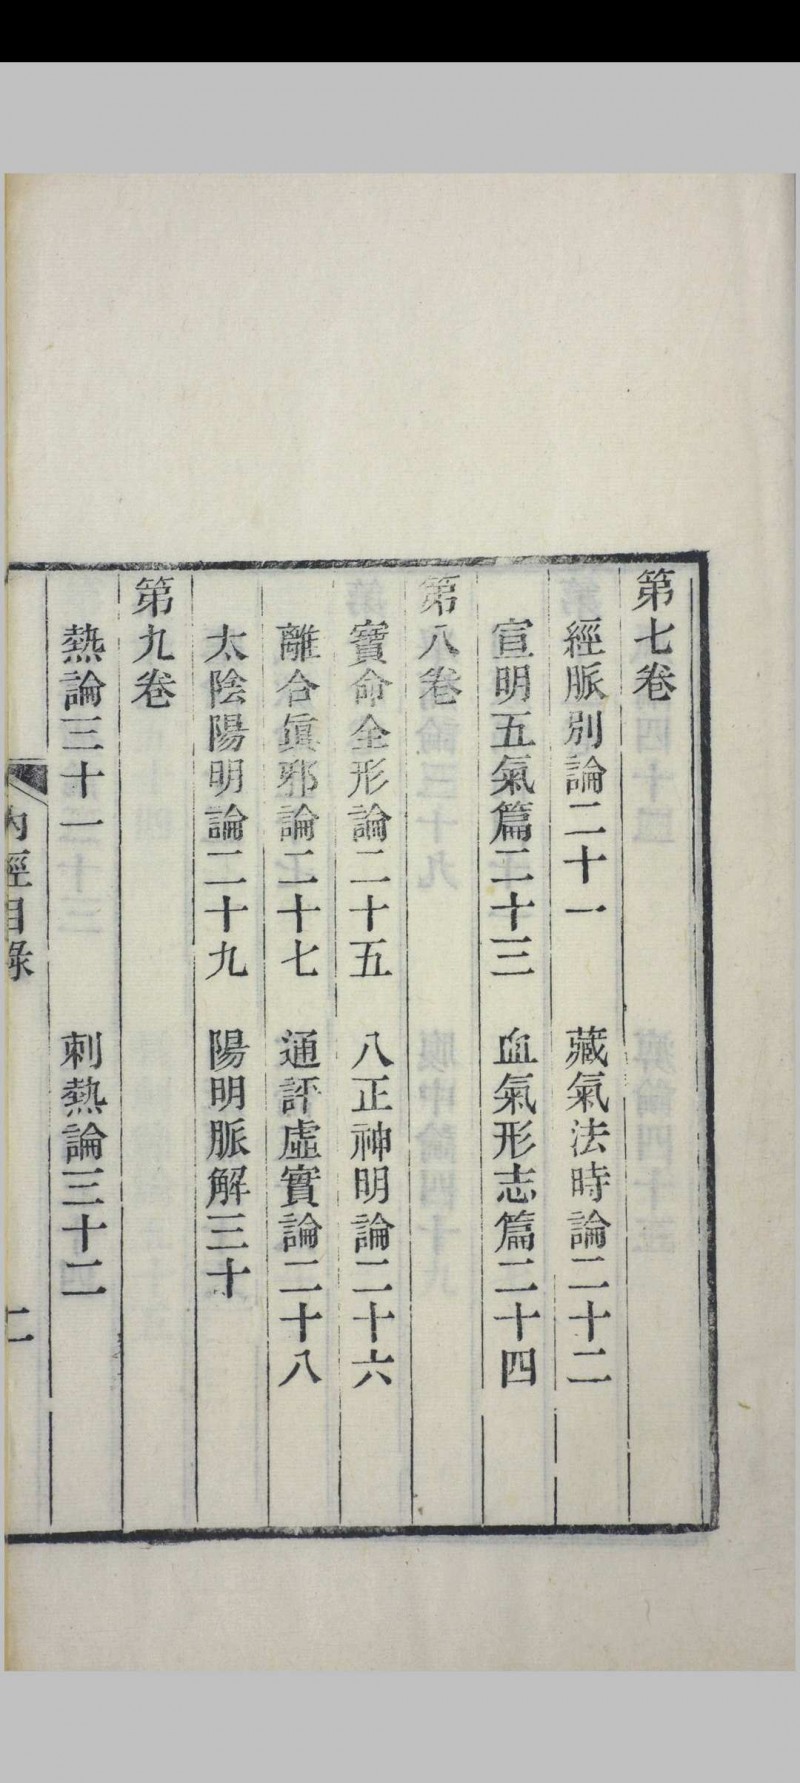 第七卷
經脈別論二十一　藏氣法時論二十二
宣明五氣篇二十三　血氣形志篇二十四
第八卷
寶命全形論二十五　八正神明論二十六
離合眞邪論二十七　通評虛實論二十八
太陰陽明論二十九　陽明脈解三十
第九卷
熱論三十一　刺熱論三十二
內經目錄　二